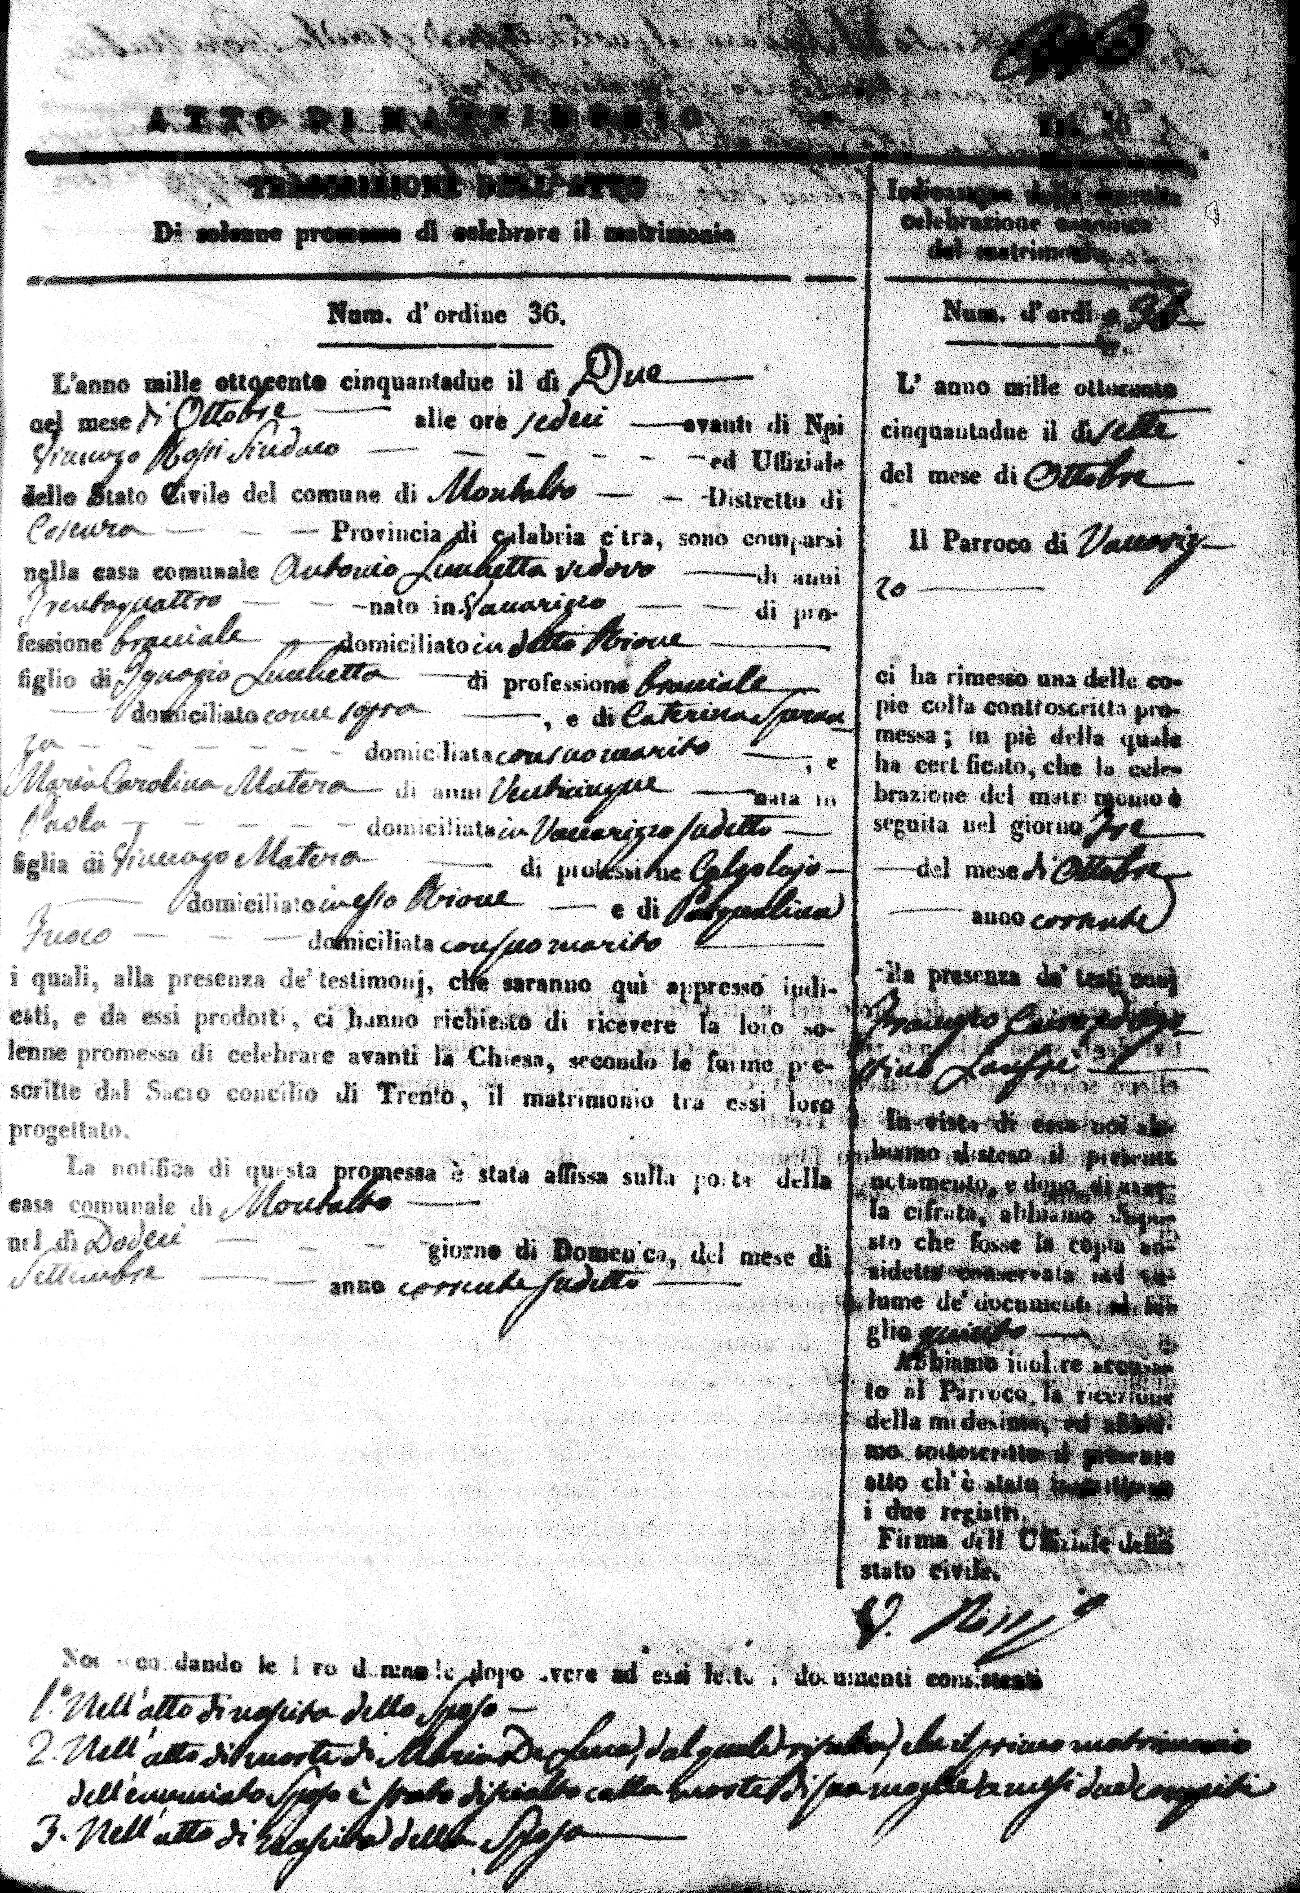 ATTO DI MATRIMONIO
TRASCRIZIONE DELL'ATTO
Di solenne promessa di celebrare il matrimonio
Num. d'ordine 36.
L'anno mille ottocento cinquantadue il dì Due
nel mese di Ottobre alle ore sedeci avanti di Noi
Vincenzo Rossi Sindaco ed Uffiziale
dello Stato Civile del comune di Montalto Distretto di
Cosenza Provincia di calabria citra, sono comparsi
nella casa comunale Antonio Lucchetta vedovo di anni
Trentaquattro nato in Vaccarizzo di pro-
fessione bracciale domiciliato in detto Rione
figlio di Ignazio Lucchetta di professione bracciale
domiciliato come sopra , e di Caterina Speran
za domiciliata con suo marito , e
Maria Carolina Matera di anni Venticinque nata in
Paola domiciliata in Vaccarizzo sudetto
figlia di Vincenzo Matera di professione Calzolajo
domiciliato in esso Rione e di Pasqualina
Fusco domiciliata con suo marito
i quali, alla presenza de' testimonj, che saranno qui appresso indi-
cati, e da essi prodotti, ci hanno richiesto di ricevere la loro so-
lenne promessa di celebrare avanti la Chiesa, secondo le forme pre-
scritte dal Sacro concilio di Trento, il matrimonio tra essi loro
progettato.
La notifica di questa promessa è stata affissa sulla porta della
casa comunale di Montalto
nel dì Dodeci giorno di Domenica, del mese di
Settembre anno corrente sudetto
Indicazione della
celebrazione
del matrimonio
Num. d'ordine
L' anno mille ottocento
cinquantadue il dì sette
del mese di Ottobre
Il Parroco di Vaccariz
zo
ci ha rimesso una delle co-
pie colla controscritta pro-
messa; in piè della quale
ha certificato, che la cele-
brazione del matrimonio è
seguita nel giorno Tre
del mese di Ottobre
anno corrente
alla presenza de' testimonj
In vista di essa noi ab-
biamo disteso il presente
notamento, e dopo di aver-
la cifrata, abbiamo dispo-
sto che fosse la copia an-
zidetta conservata nel vo-
lume de' documenti al fo-
glio quinto
Abbiamo inoltre accusa-
to al Parroco la ricezione
della medesima, ed abbia-
mo sottoscritto il presente
atto ch' è stato
i due registri.
Firma dell Uffiziale dello
stato civile.
V. Rossi
Noi secondando le loro domande dopo avere ad essi letto i documenti consistenti
1.° Nell'atto di nascita dello Sposo
2. Nell'atto di morte di Maria De Luca, dal quale risulta, che il primo matrimonio
dell'enunciato Sposo è stato disciolto colla morte di sua moglie
3. Nell'atto di nascita della Sposa